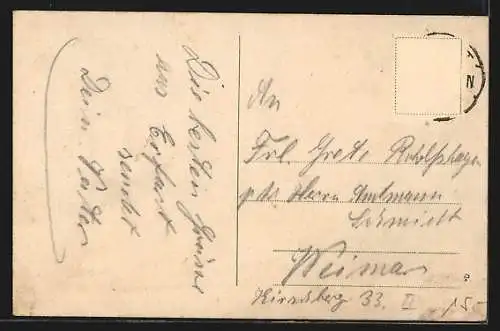 Die besten Grüsse
aus Erfurt
sendet
Dein Vater
An
Frl. Grete Rodolphagen
p. Adr. Herrn Amtmann
Schmidt
Weimar
Hirschberg 33. II
15
N